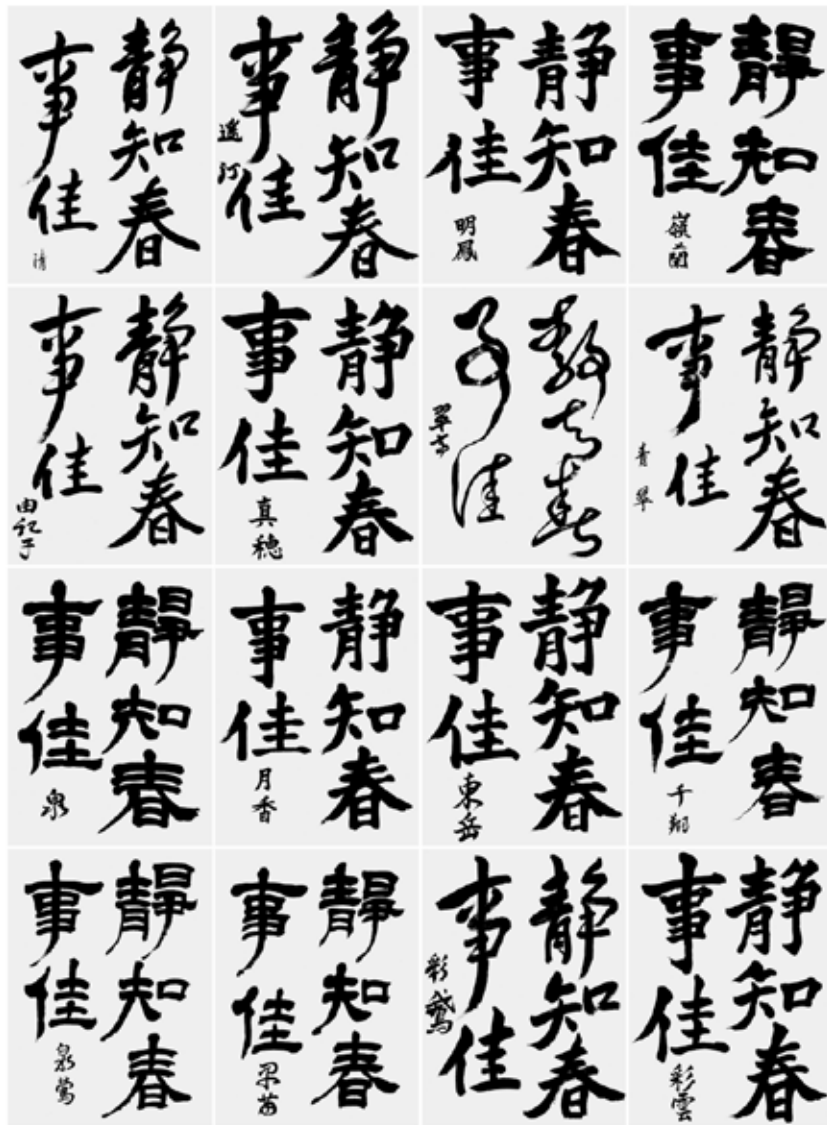 静知春
事佳
清
静知春
事佳
遥汀
静知春
事佳
明鳳
静知春
事佳
嶺蘭
静知春
事佳
由記子
静知春
事佳
真穂
静知春
事佳
静知春
事佳
青翠
静知春
事佳
泉
静知春
事佳
月香
静知春
事佳
東岳
静知春
事佳
千翔
静知春
事佳
泉鶯
静知春
事佳
静知春
事佳
静知春
事佳
彩雲